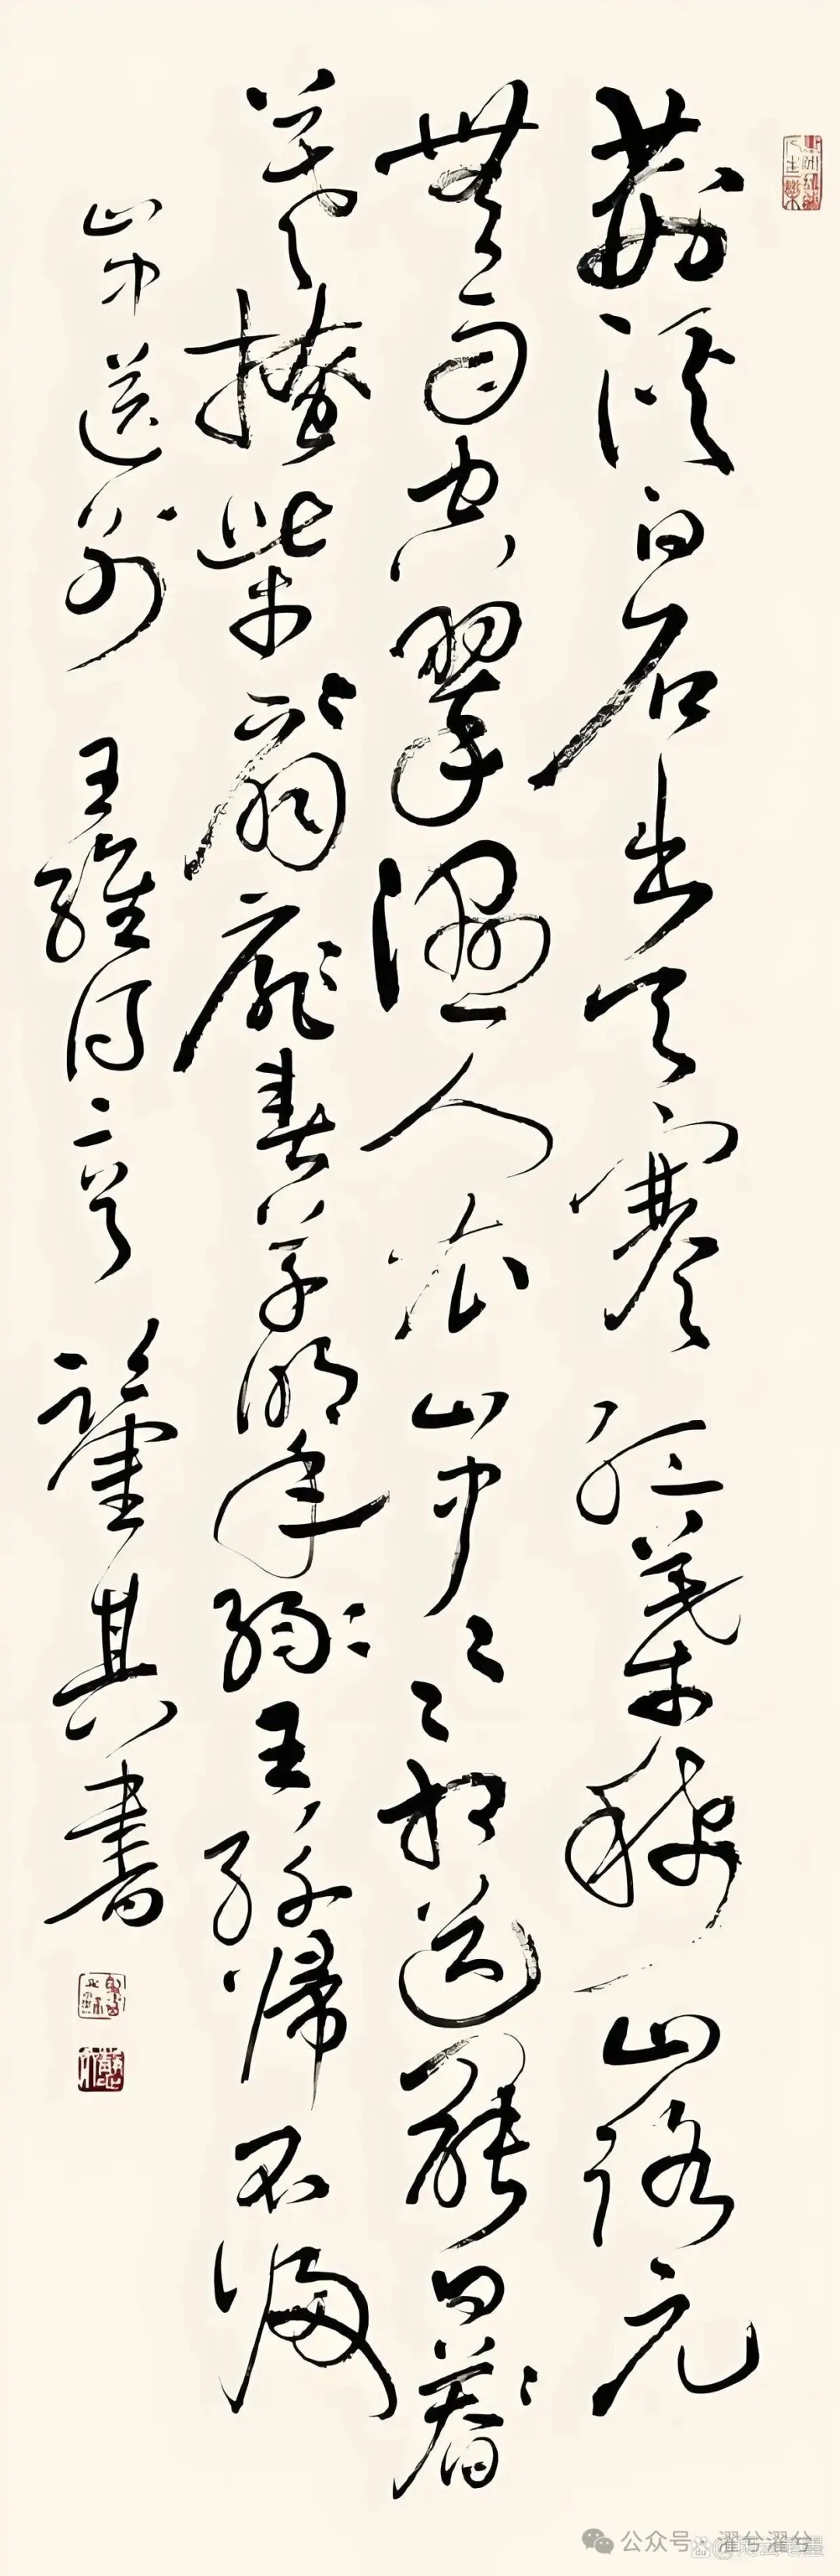 荆溪白石出天寒紅葉稀山路元
無雨空翠濕人衣山中相送罷日暮
暮掩柴扉春草明年綠王孫歸不歸
山中送别 王維詩二首 其書
公众号 · 濯兮濯兮